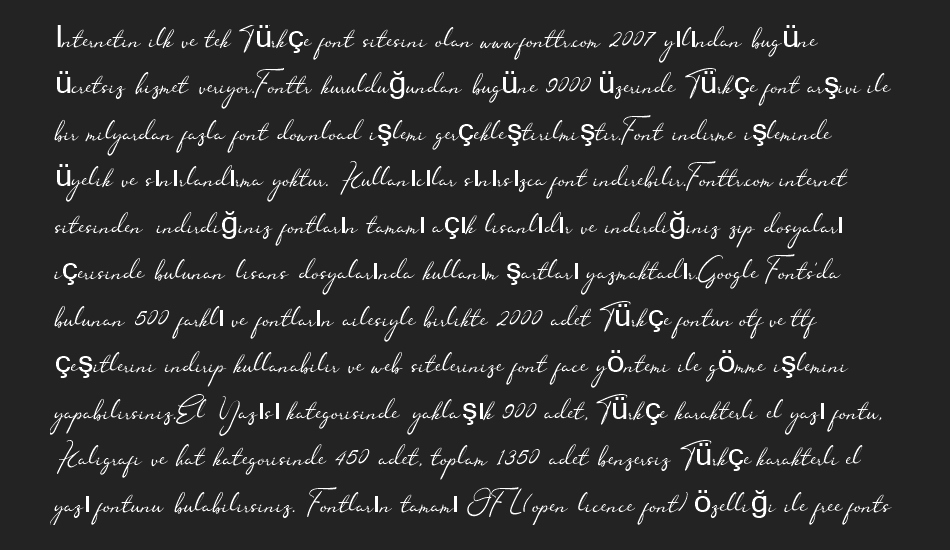 İnternetin ilk ve tek Türkçe font sitesini olan www.fonttr.com 2007 yılından bugüne
ücretsiz hizmet veriyor.Fonttr kurulduğundan bugüne 9000 üzerinde Türkçe font arşivi ile
bir milyardan fazla font download işlemi gerçekleştirilmiştir.Font indirme işleminde
üyelik ve sınırlandırma yoktur. Kullanıcılar sınırsızca font indirebilir.Fonttr.com internet
sitesinden indirdiğiniz fontların tamamı açık lisanlıdır ve indirdiğiniz zip dosyaları
içerisinde bulunan lisans dosyalarında kullanım şartları yazmaktadır.Google Fonts'da
bulunan 500 farklı ve fontların ailesiyle birlikte 2000 adet Türkçe fontun otf ve ttf
çeşitlerini indirip kullanabilir ve web sitelerinize font face yöntemi ile gömme işlemini
yapabilirsiniz.El Yazısı kategorisinde yaklaşık 900 adet, Türkçe karakterli el yazı fontu,
Kaligrafi ve hat kategorisinde 450 adet, toplam 1350 adet benzersiz Türkçe karakterli el
yazı fontunu bulabilirsiniz. Fontların tamamı OFL(open licence font) özelliği ile free fonts